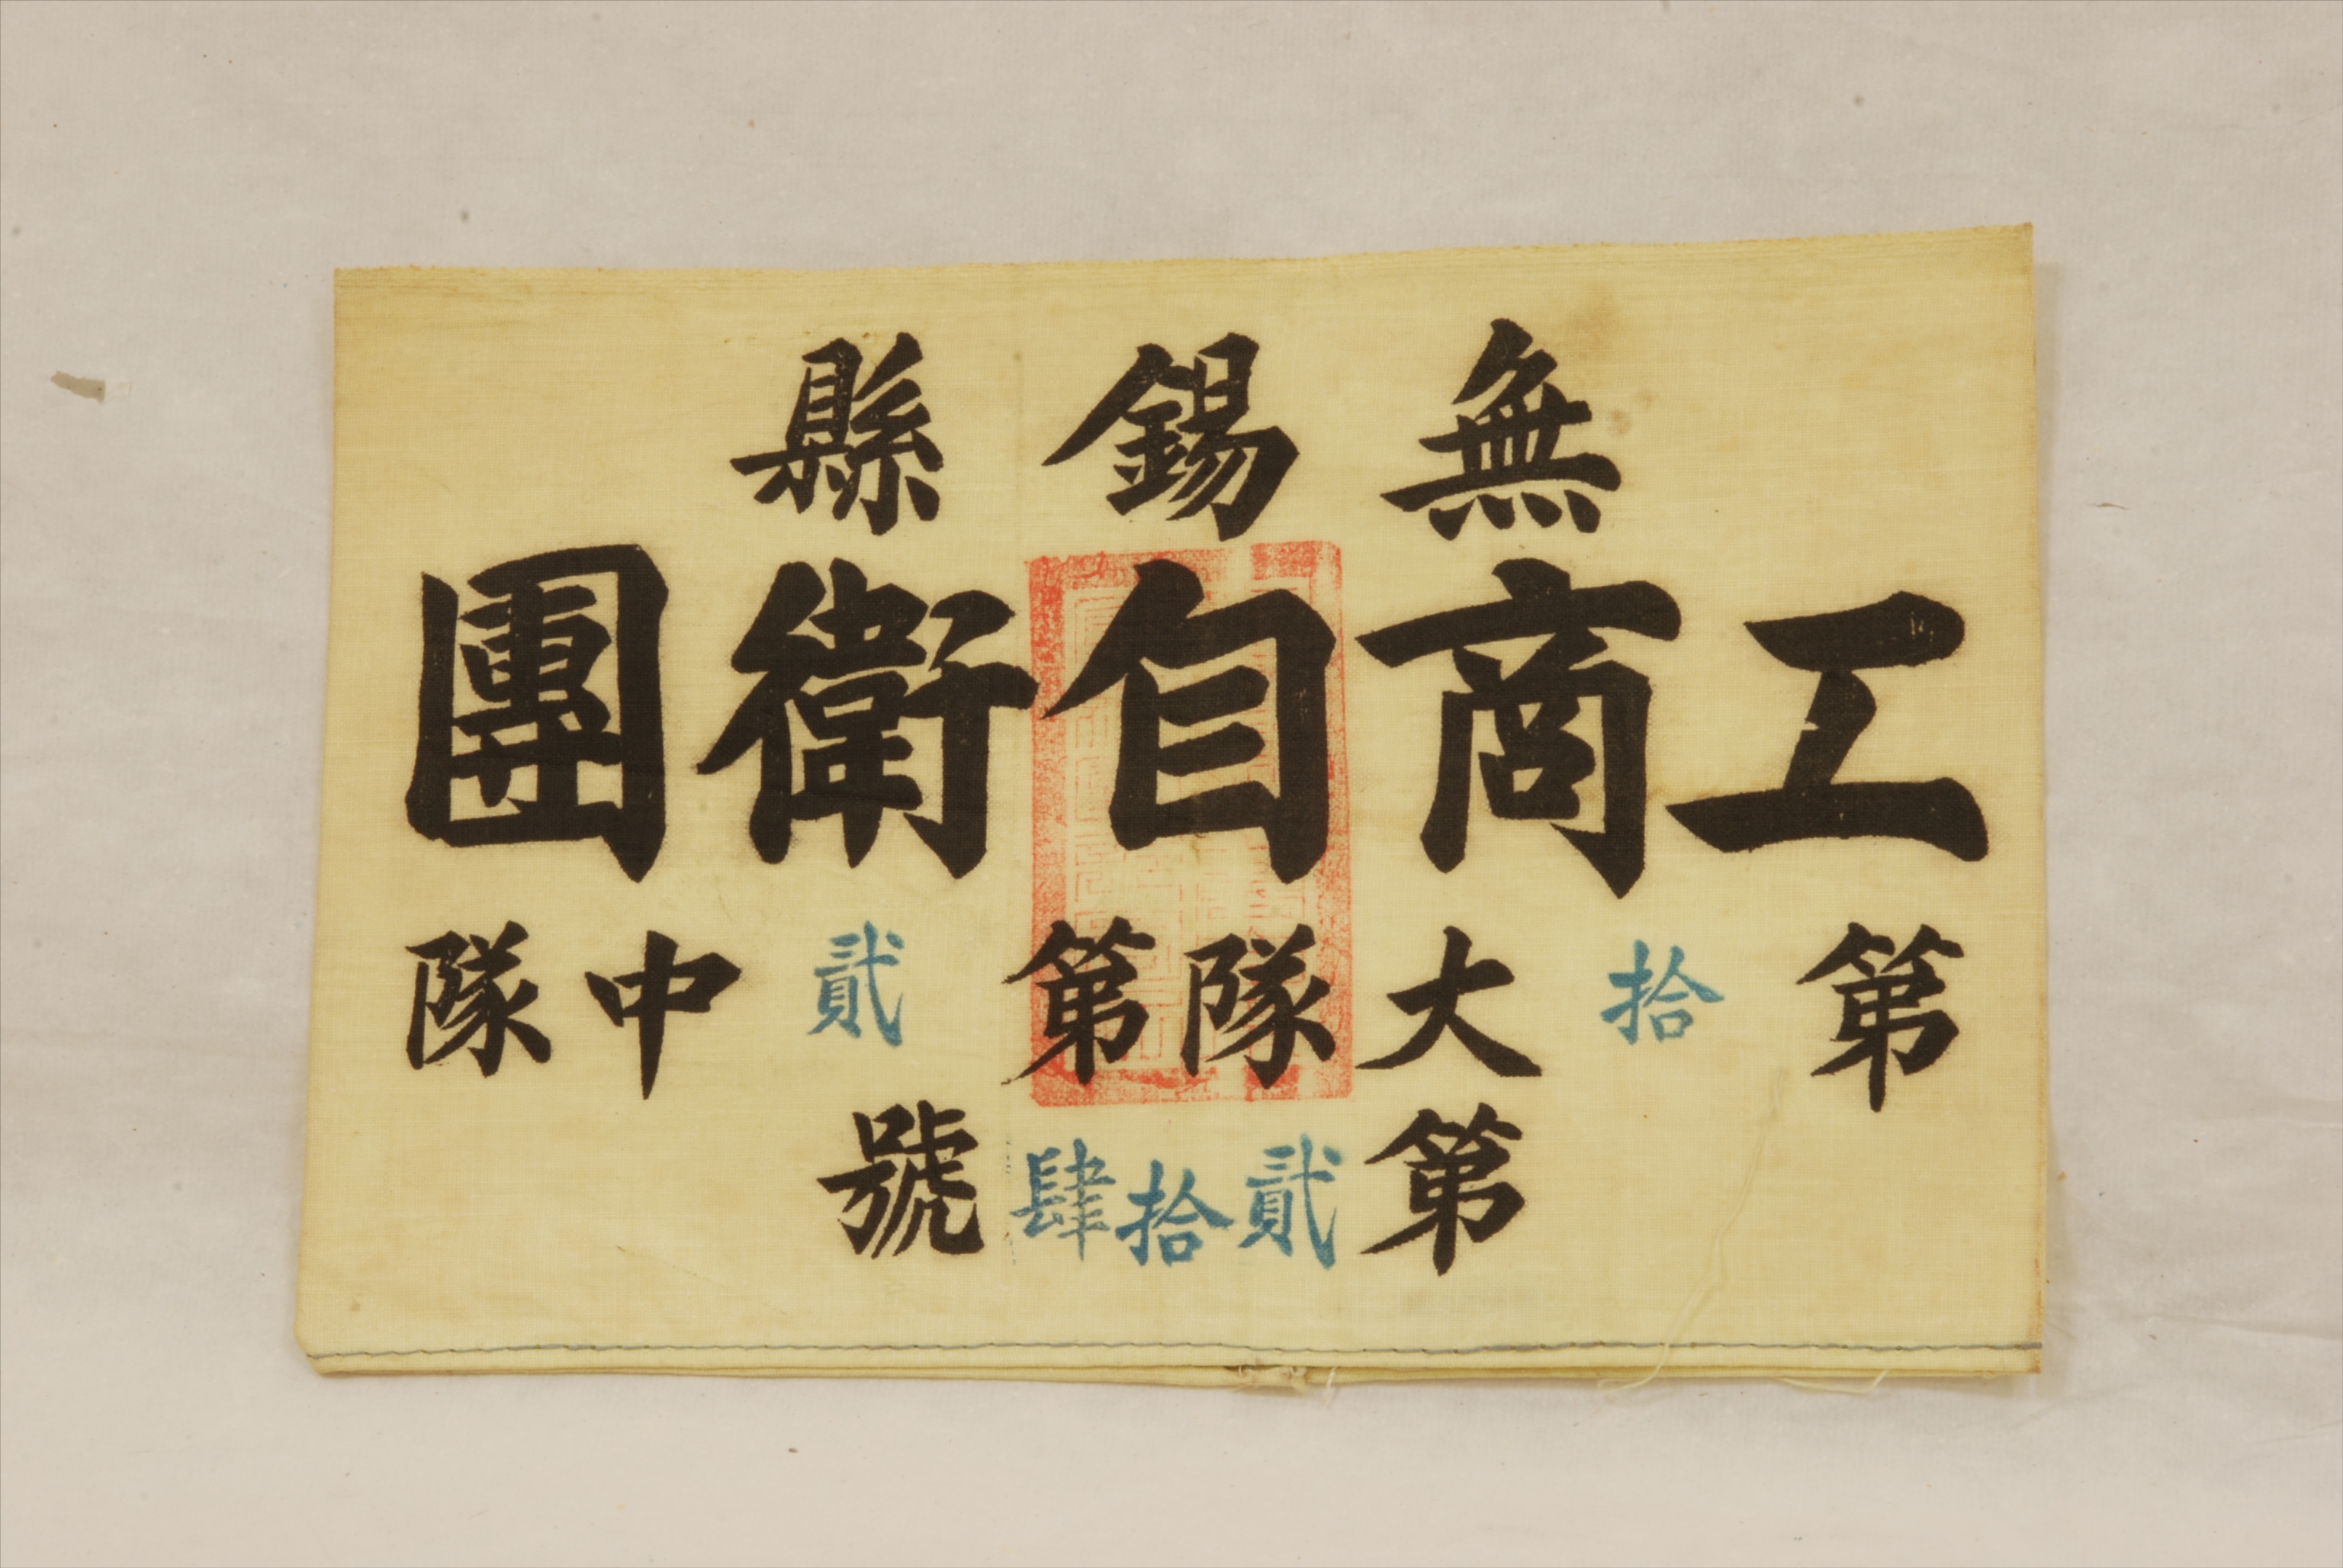 無錫縣
工商自衛團
第拾大隊第貳中隊
第貳拾肆號